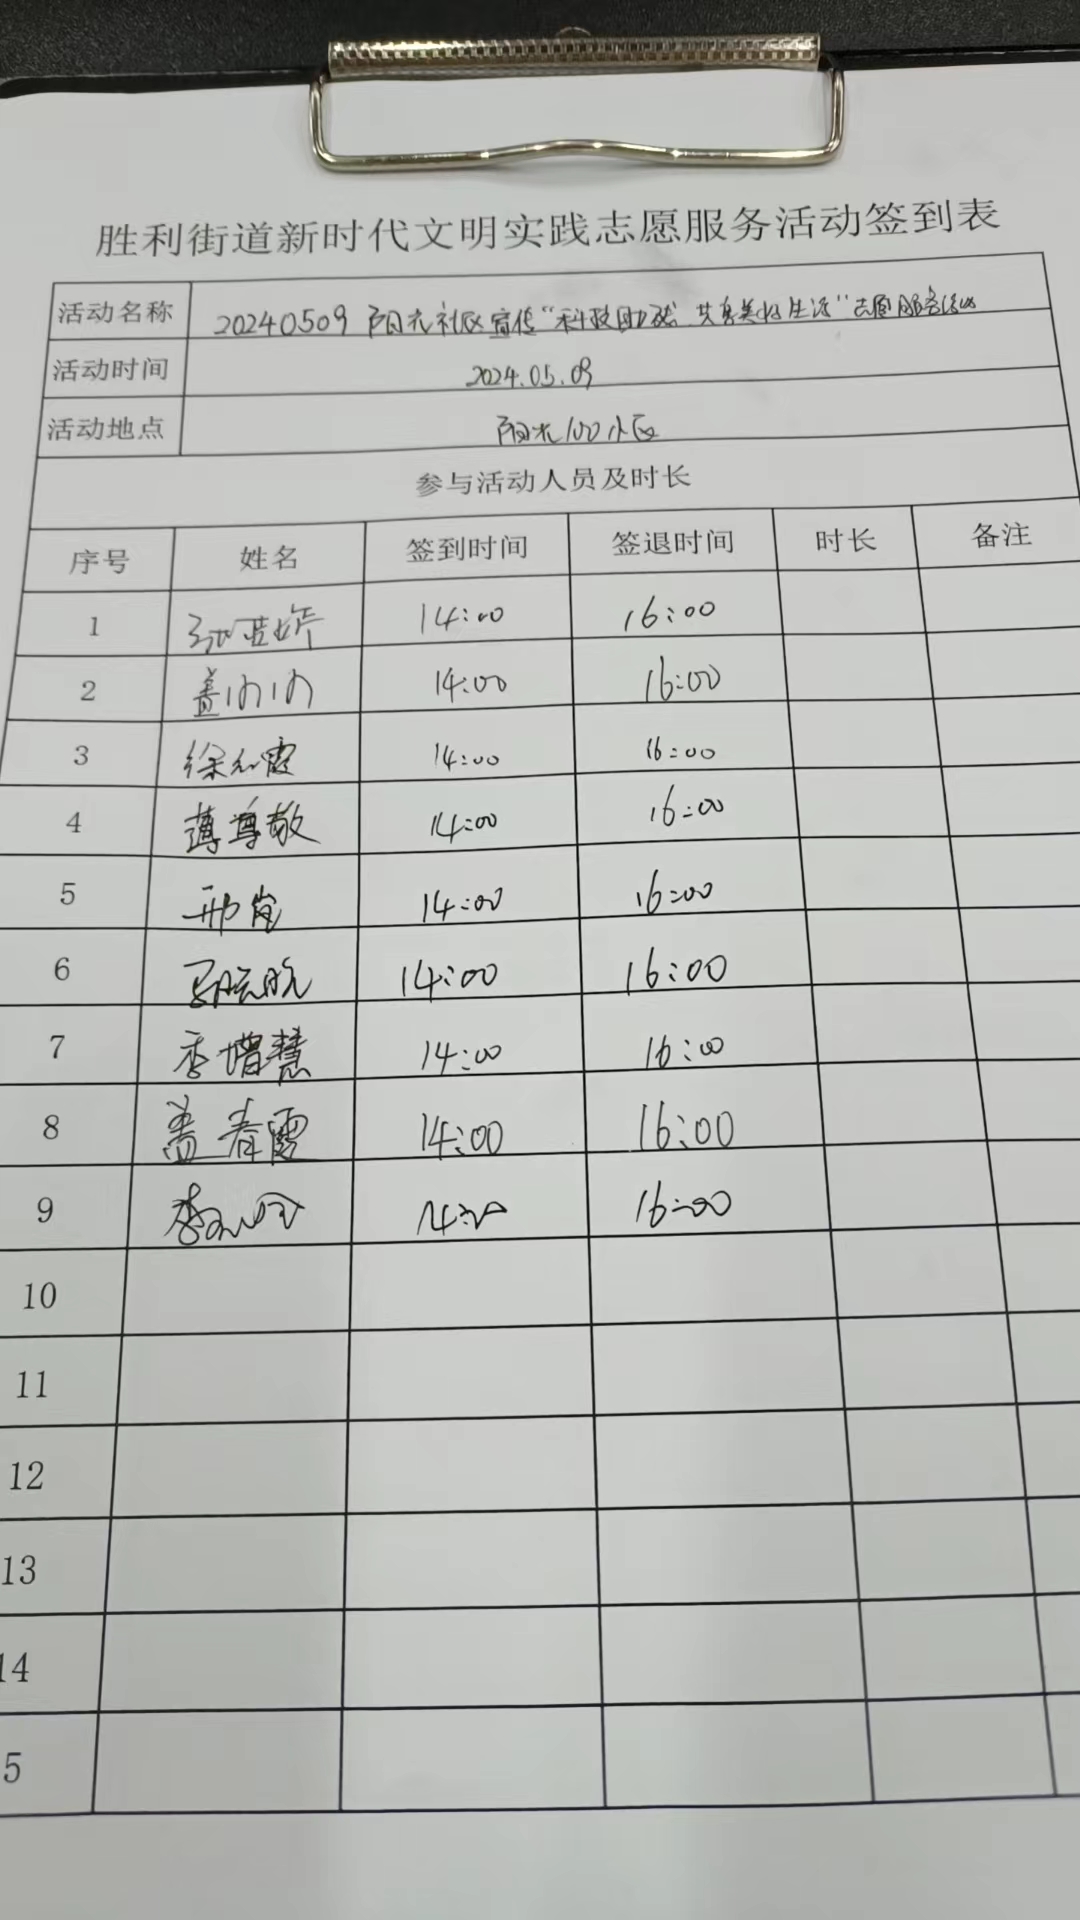 胜利街道新时代文明实践志愿服务活动签到表
活动名称 20240509 阳光社区宣传“科技助残 共享美好生活”志愿服务活动
活动时间 2024.05.09
活动地点 阳光100小区
参与活动人员及时长
序号 姓名 签到时间 签退时间 时长 备注
1 14:00 16:00
2 盖 14:00 16:00
3 徐 霞 14:00 16:00
4 薄尊敬 14:00 16:00
5 邢 14:00 16:00
6 14:00 16:00
7 季增慧 14:00 16:00
8 盖春霞 14:00 16:00
9 李 14:00 16:00
10
11
12
13
14
5